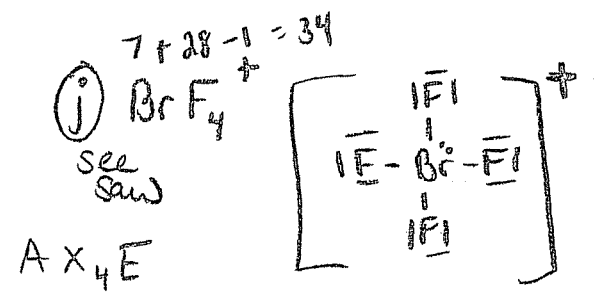 7 + 28 - 1 = 34
j BrF₄⁺
see
saw
AX₄E
[ |F| +
|F - Br - F|
|F| ]